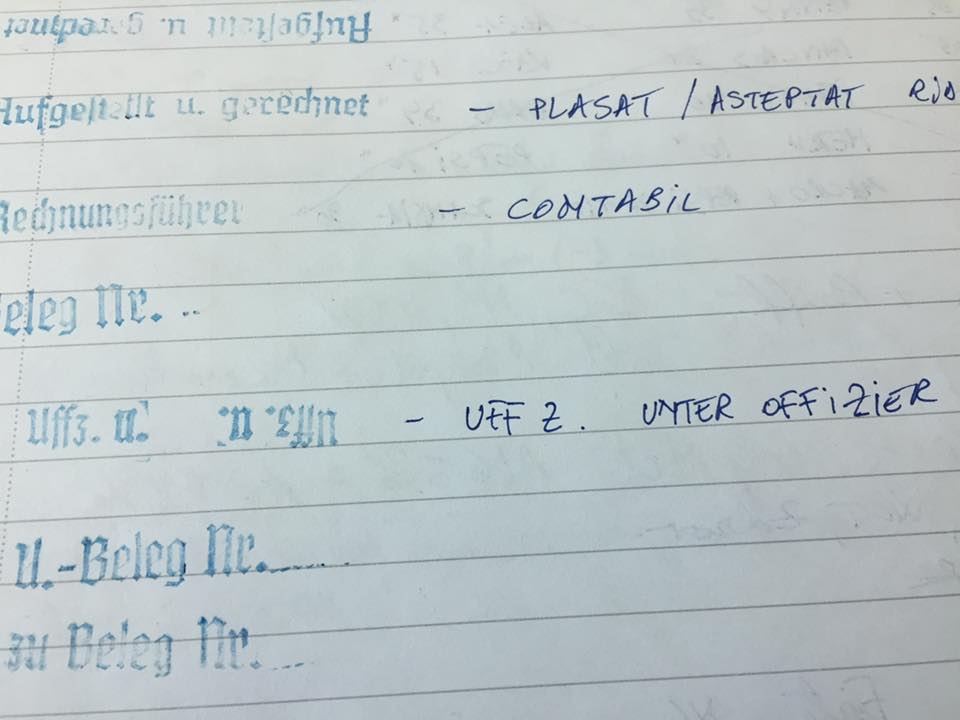 Aufgestellt u. gerechnet
Aufgestellt u. gerechnet - PLASAT / ASTEPTAT
Rechnungsführer - CONTABIL
Beleg Nr. ..
Uffz. u. Uffz. u. - UFF Z. UNTER OFFIZIER
U.-Beleg Nr.......
zu Beleg Nr.....